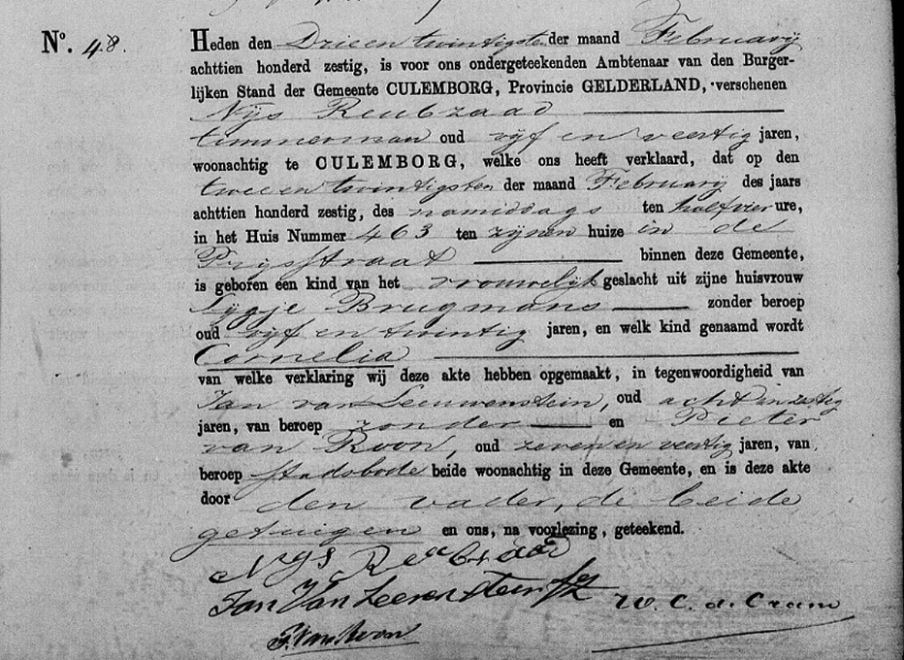 No. 48.
Heden den Drie en twintigsten der maand Februarij
achttien honderd zestig, is voor ons ondergeteekenden Ambtenaar van den Burger-
lijken Stand der Gemeente CULEMBORG, Provincie GELDERLAND, verschenen
Nijs Reubzaad
timmerman oud vijf en veertig jaren,
woonachtig te CULEMBORG, welke ons heeft verklaard, dat op den
twee en twintigsten der maand Februarij des jaars
achttien honderd zestig, des namiddags ten half vier ure,
in het Huis Nummer 463 ten zijnen huize in de
Prijsstraat binnen deze Gemeente,
is geboren een kind van het vrouwelijk geslacht uit zijne huisvrouw
Sijpje Brugmans zonder beroep
oud vijf en twintig jaren, en welk kind genaamd wordt
Cornelia
van welke verklaring wij deze akte hebben opgemaakt, in tegenwoordigheid van
Jan van Leeuwenstein, oud acht en zestig
jaren, van beroep zonder en Pieter
van Roon, oud zeven en veertig jaren, van
beroep stadsbode beide woonachtig in deze Gemeente, en is deze akte
door den vader, de beide
getuigen en ons, na voorlezing, geteekend.
Nys Reubzaad
Jan Van Leevenstein
P. Van Roon
W. C. d. Crane